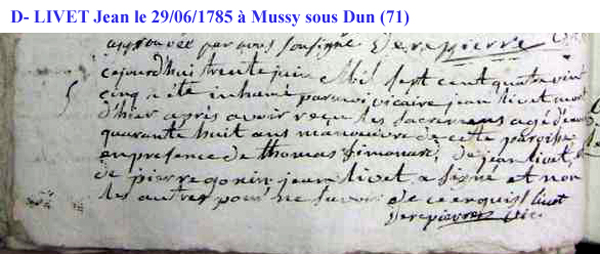 D- LIVET Jean le 29/06/1785 à Mussy sous Dun (71)
approuvée par nous soussigné Derepierre
cejourd'hui trente juin mil sept cent quatre vin
cinq a été inhumé par moi vicaire jean livet mort
d'hier après avoir reçu les sacremens agé d'env
quarante huit ans manoeuvre de cette paroisse
en presence de thomas Simonard, de jean livet,
de pierre gonin jean livet a signé et non
les autres pour ne savoir de ce enquis livet
Derepierre vic